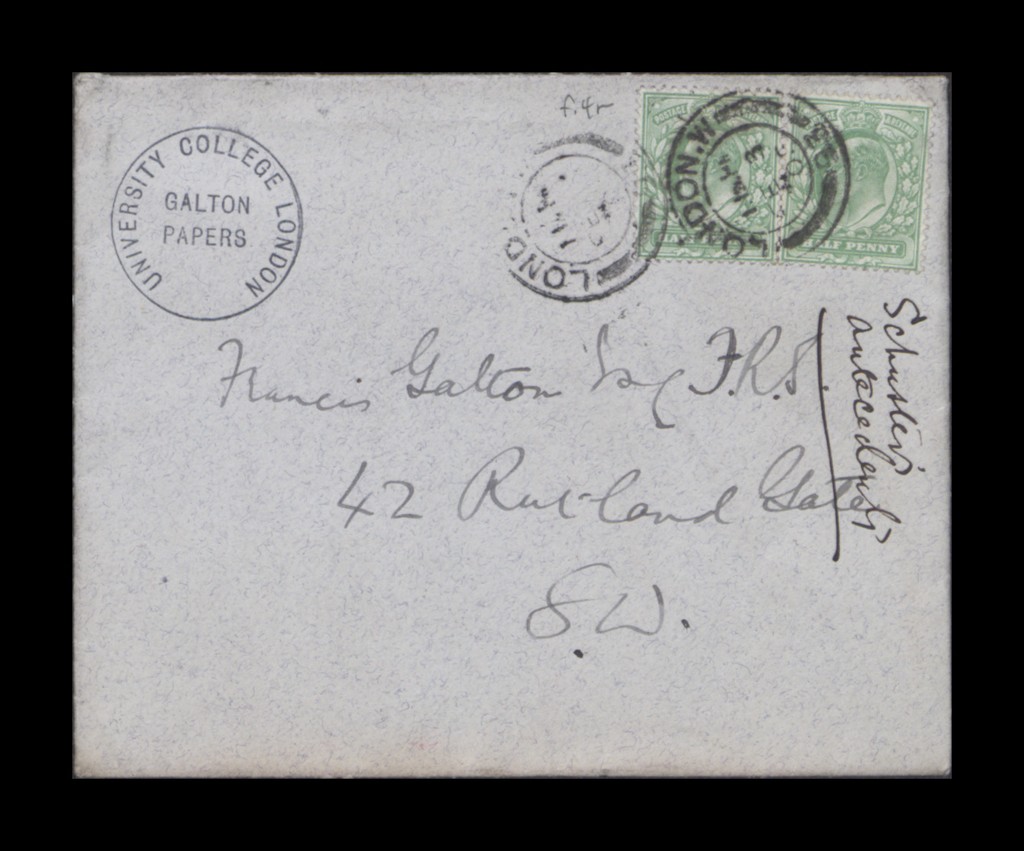 f.4r
UNIVERSITY COLLEGE LONDON
GALTON
PAPERS
LONDON.W
HALF PENNY
Francis Galton Esq F.R.S.
42 Rutland Gate
S.W.
Schuster's
antecedents